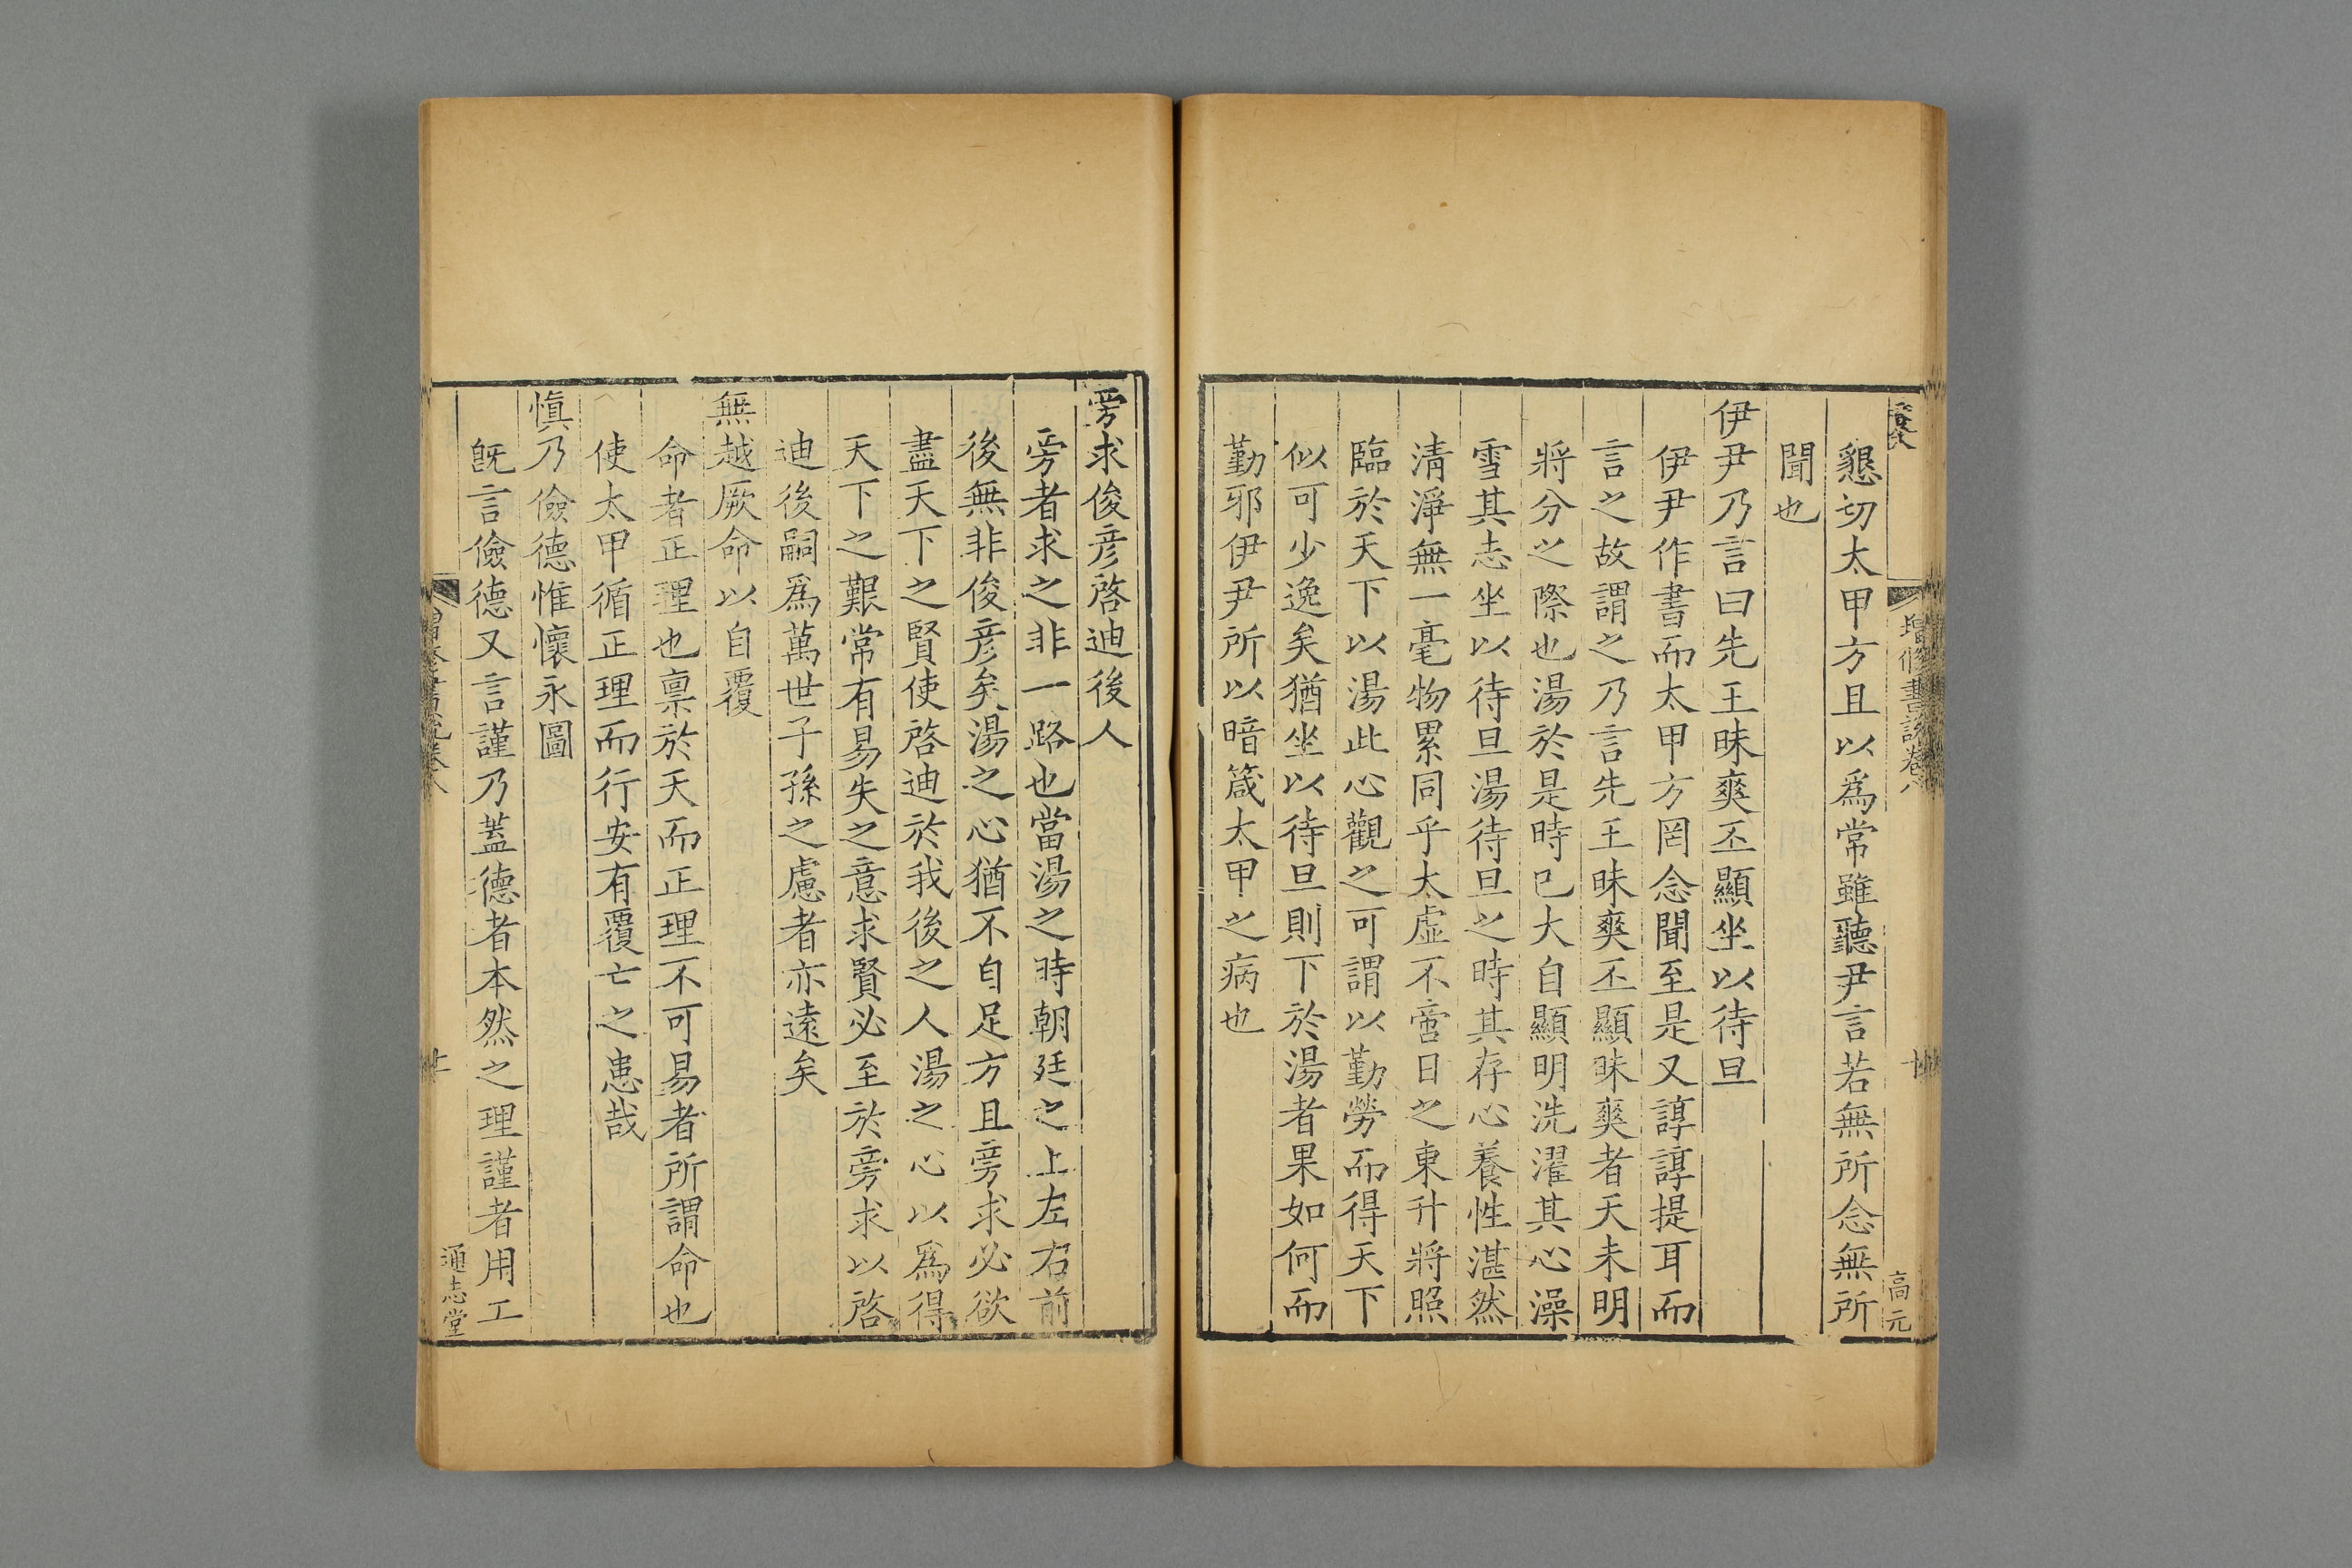 增修書說卷八
十
高元
懇切太甲方且以爲常雖聽尹言若無所念無所
聞也
伊尹乃言曰先王昧爽丕顯坐以待旦
伊尹作書而太甲方罔念聞至是又諄諄提耳而
言之故謂之乃言先王昧爽丕顯昧爽者天未明
將分之際也湯於是時已大自顯明洗濯其心澡
雪其志坐以待旦湯待旦之時其存心養性湛然
清淨無一毫物累同乎太虛不啻日之東升將照
臨於天下以湯此心觀之可謂以勤勞而得天下
似可少逸矣猶坐以待旦則下於湯者果如何而
勤邪伊尹所以暗箴太甲之病也
旁求俊彥啓迪後人
旁者求之非一路也當湯之時朝廷之上左右前
後無非俊彥矣湯之心猶不自足方且旁求必欲
盡天下之賢使啓迪於我後之人湯之心以爲得
天下之艱常有易失之意求賢必至於旁求以啓
迪後嗣爲萬世子孫之慮者亦遠矣
無越厥命以自覆
命者正理也禀於天而正理不可易者所謂命也
使太甲循正理而行安有覆亡之患哉
慎乃儉德惟懷永圖
旣言儉德又言謹乃蓋德者本然之理謹者用工
通志堂